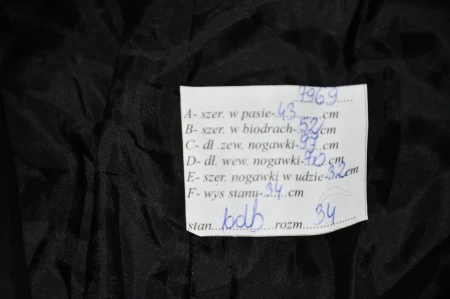 7969
A- szer. w pasie-43 cm
B- szer. w biodrach-52 cm
C- dł .zew. nogawki- cm
D- dł. wew. nogawki-70 cm
E- szer. nogawki w udzie-32cm
F- wys stanu-34 cm
stan bdb rozm 34